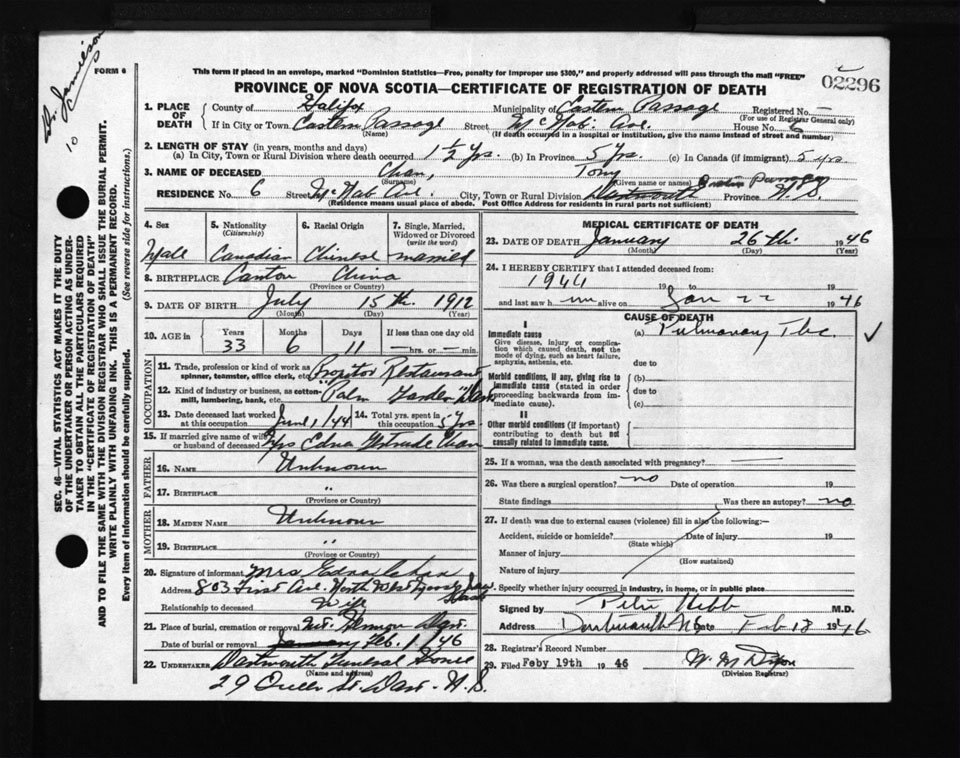 Dr. Jamieson
10
FORM 6
This form if placed in an envelope, marked "Dominion Statistics—Free, penalty for improper use $300," and properly addressed will pass through the mail "FREE"
PROVINCE OF NOVA SCOTIA—CERTIFICATE OF REGISTRATION OF DEATH
02296
1. PLACE OF DEATH
County of Halifax (Name) Municipality of Eastern Passage Registered No. —
(For use of Registrar General only)
If in City or Town Eastern Passage Street McNab Ave. House No. 6
(If death occurred in a hospital or institution, give the name instead of street and number)
2. LENGTH OF STAY (in years, months and days)
(a) In City, Town or Rural Division where death occurred 1 1/2 Yrs. (b) In Province 5 Yrs. (c) In Canada (if immigrant) 5 yrs
3. NAME OF DECEASED Chan, Tony
(Surname) (Given name or names)
RESIDENCE No. 6 Street McNab Ave. City, Town or Rural Division Dartmouth Eastern Passage Province N.S.
(Residence means usual place of abode. Post Office Address for residents in rural parts not sufficient)
4. Sex Male
5. Nationality (Citizenship) Canadian
6. Racial Origin Chinese
7. Single, Married, Widowed or Divorced (write the word) married
8. BIRTHPLACE Canton China
(Province or Country)
9. DATE OF BIRTH July 15th. 1912
(Month) (Day) (Year)
10. AGE in Years Months Days If less than one day old
33 6 11 — hrs. or — min.
OCCUPATION
11. Trade, profession or kind of work as spinner, teamster, office clerk, etc. Propritor Restaurant
12. Kind of industry or business, as cotton-mill, lumbering, bank, etc. "Palm Garden"
13. Date deceased last worked at this occupation June 1/44
14. Total yrs. spent in this occupation 5 Yrs.
15. If married give name of wife or husband of deceased Mrs Edna Gertrude Chan
FATHER
16. NAME Unknown
17. BIRTHPLACE "
(Province or Country)
MOTHER
18. MAIDEN NAME Unknown
19. BIRTHPLACE "
(Province or Country)
20. Signature of informant Mrs Edna Chan
Address 803 First Ave. North West Moose Jaw Sask
Relationship to deceased Wife
21. Place of burial, cremation or removal Mt. Hermon Dart.
Date of burial or removal January Feb. 1 1946
22. UNDERTAKER Dartmouth Funeral Home
(Name and address)
29 Queen St. Dart. N.S.
MEDICAL CERTIFICATE OF DEATH
23. DATE OF DEATH January 26th. 1946
(Month) (Day) (Year)
24. I HEREBY CERTIFY that I attended deceased from:
1944 19 to 19
and last saw him alive on Jan 22 1946
CAUSE OF DEATH
I
Immediate cause (a) Pulmonary Tbc
Give disease, injury or complication which caused death, not the mode of dying, such as heart failure, asphyxia, asthenia, etc.
due to
Morbid conditions, if any, giving rise to immediate cause (stated in order proceeding backwards from immediate cause).
(b)
due to
(c)
II
Other morbid conditions (if important) contributing to death but not causally related to immediate cause.
25. If a woman, was the death associated with pregnancy? —
26. Was there a surgical operation? no Date of operation 19
State findings Was there an autopsy? no
27. If death was due to external causes (violence) fill in also the following:—
Accident, suicide or homicide? Date of injury 19
(State which)
Manner of injury
(How sustained)
Nature of injury
Specify whether injury occurred in industry, in home, or in public place
Signed by Peter Hebb M.D.
Address Dartmouth NS Date Feb 18 1946
28. Registrar's Record Number
29. Filed Feby 19th 1946 W. M. Dixon
(Division Registrar)
SEC. 46—VITAL STATISTICS ACT MAKES IT THE DUTY
OF THE UNDERTAKER OR PERSON ACTING AS UNDERTAKER
TO OBTAIN ALL THE PARTICULARS REQUIRED
IN THE "CERTIFICATE OF REGISTRATION OF DEATH"
AND TO FILE THE SAME WITH THE DIVISION REGISTRAR WHO SHALL ISSUE THE BURIAL PERMIT.
WRITE PLAINLY WITH UNFADING INK. THIS IS A PERMANENT RECORD.
Every item of information should be carefully supplied. (See reverse side for instructions.)